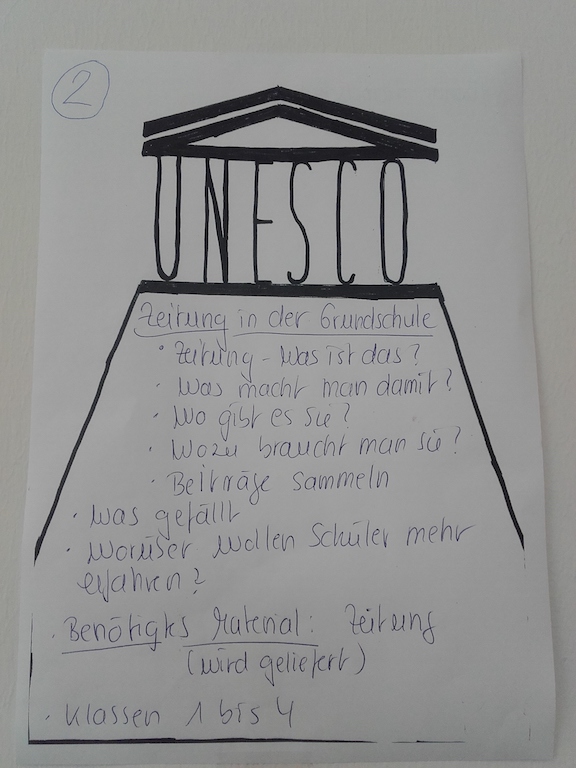 2
UNESCO
Zeitung in der Grundschule
• Zeitung - Was ist das?
· Was macht man damit?
· Wo gibt es sie?
· Wozu braucht man sie?
· Beiträge sammeln
· Was gefällt
· Worüber wollen Schüler mehr
erfahren?
· Benötigtes Material: Zeitung
(wird geliefert)
· Klassen 1 bis 4